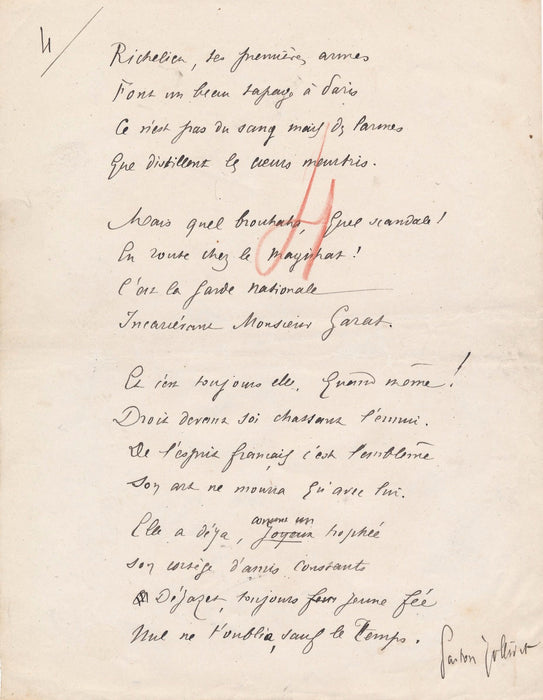 4/
Richelieu, ses premières armes
Font un beau tapage à Paris
Ce n'est pas du sang mais des larmes
Que distillent les cœurs meurtris.
4
Mais quel brouhaha, Quel scandale!
En route chez le magistrat!
C'est la Garde nationale
Incarcérant Monsieur Garat.
Et c'est toujours elle, Quand même!
Droit devant soi chassant l'ennui.
De l'esprit français c'est l'emblème
Son art ne mourra qu'avec lui.
comme un
Elle a déjà, Joyeux trophée
Son cortège d'amis constants
Déjazet, toujours jeune fée
Nul ne t'oublia, sauf le Temps.
Gaston Jollivet